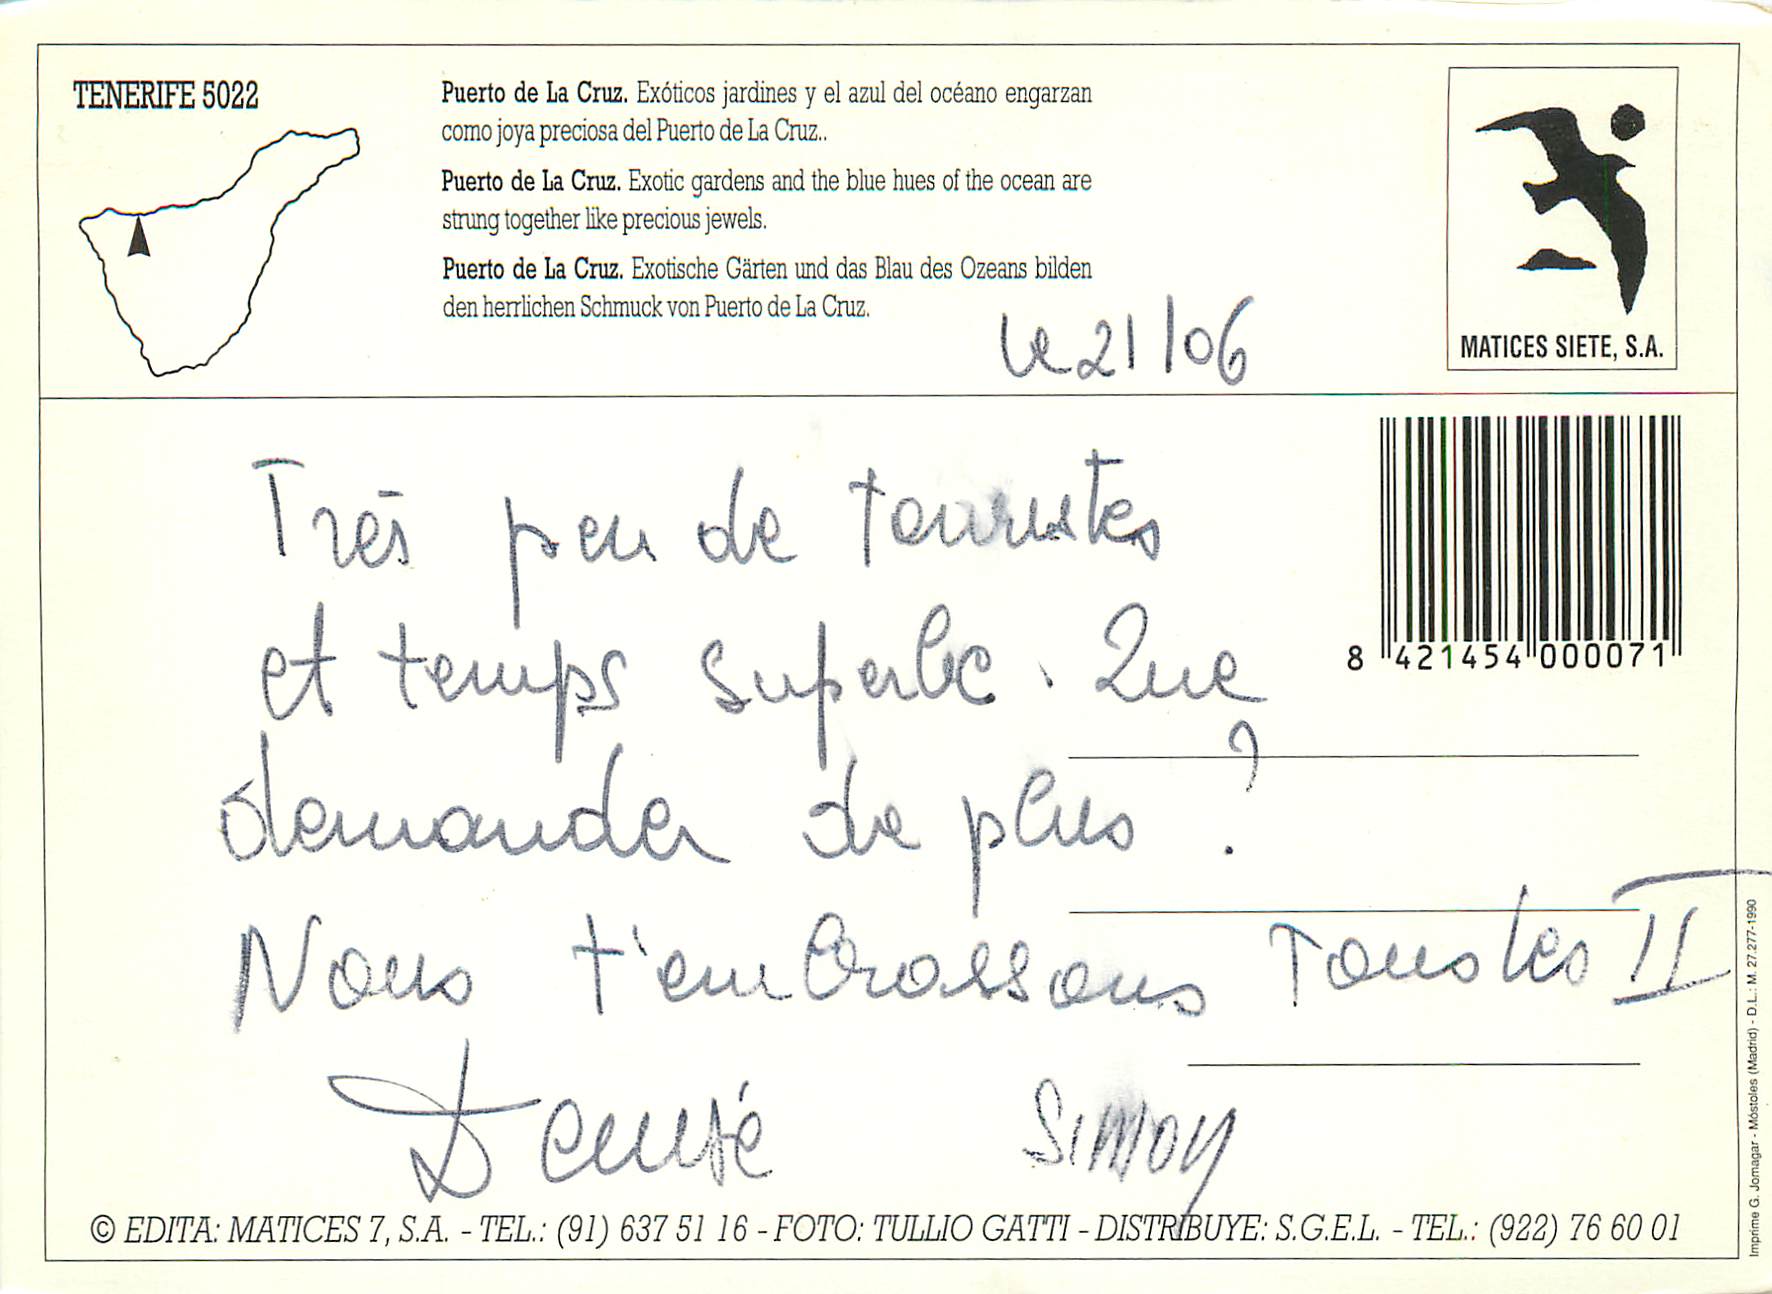 TENERIFE 5022
Puerto de La Cruz. Exóticos jardines y el azul del océano engarzan
como joya preciosa del Puerto de La Cruz..
Puerto de La Cruz. Exotic gardens and the blue hues of the ocean are
strung together like precious jewels.
Puerto de La Cruz. Exotische Gärten und das Blau des Ozeans bilden
den herrlichen Schmuck von Puerto de La Cruz.
MATICES SIETE, S.A.
le 21/06
8 421454 000071
Très peu de touristes
et temps superbe. Que
demander de plus ?
Nous t'embrassons Tous les II
Denise Simon
© EDITA: MATICES 7, S.A. - TEL.: (91) 637 51 16 - FOTO: TULLIO GATTI - DISTRIBUYE: S.G.E.L. - TEL.: (922) 76 60 01
Imprime G. Jomagar - Móstoles (Madrid) - D.L.: M. 27.277-1990